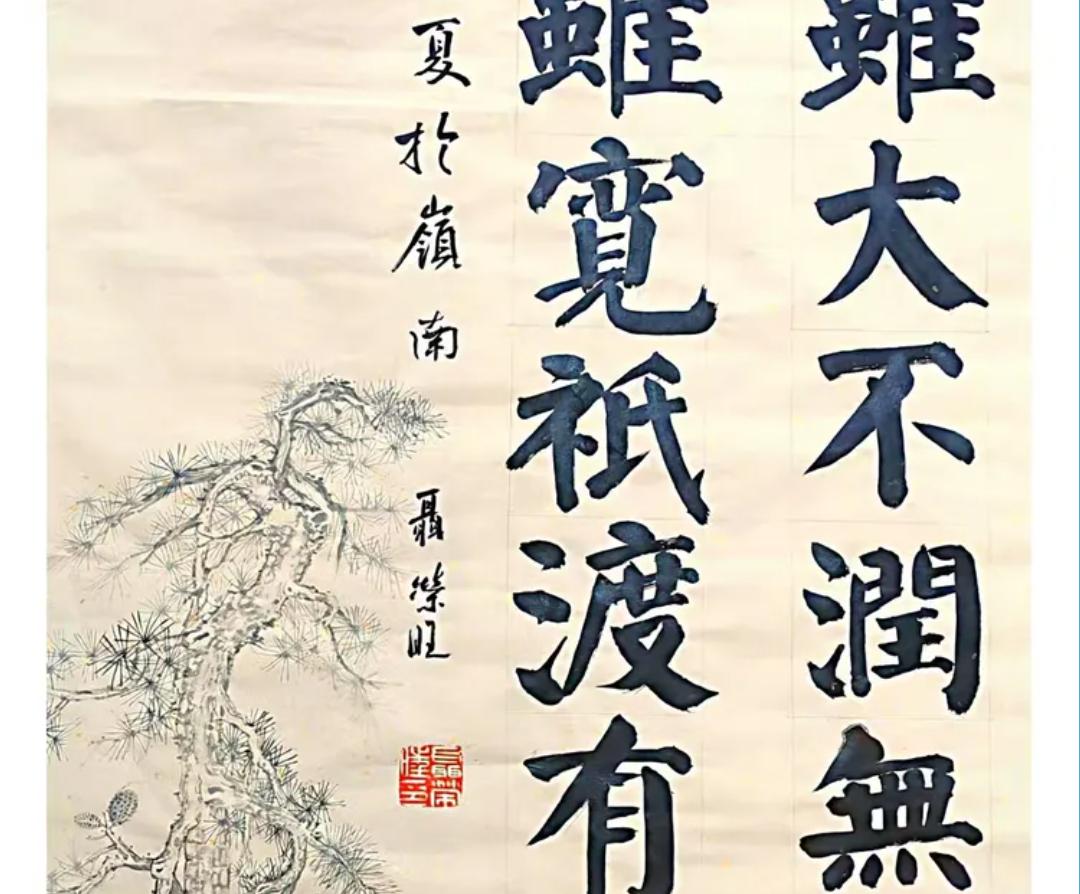 雖大不潤無
雖寬祇渡有
夏於嶺南 聶榮旺